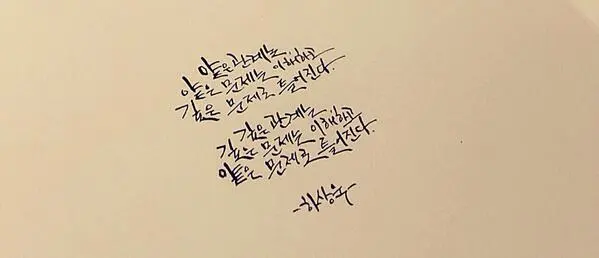 얕은 관계는
얕은 문제는 이해하고
깊은 문제로 틀어진다.
깊은 관계는
깊은 문제는 이해하고
얕은 문제로 틀어진다.
-하상욱